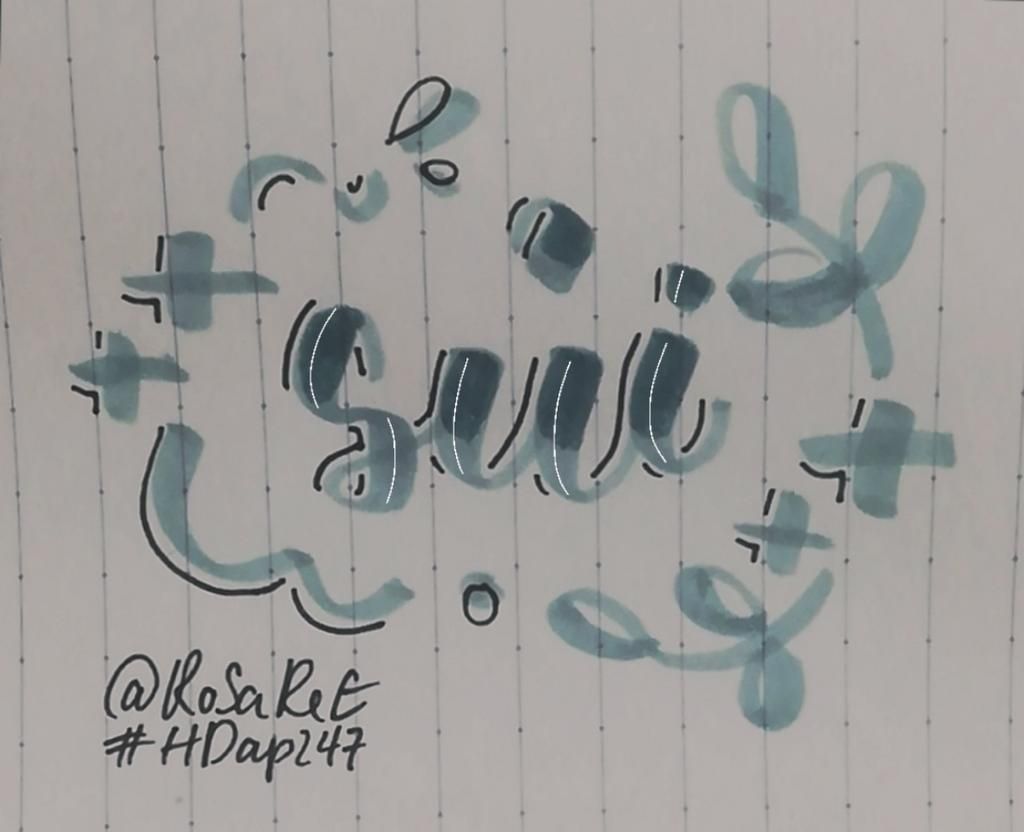 Sui
@RoSaReE
#HDap247